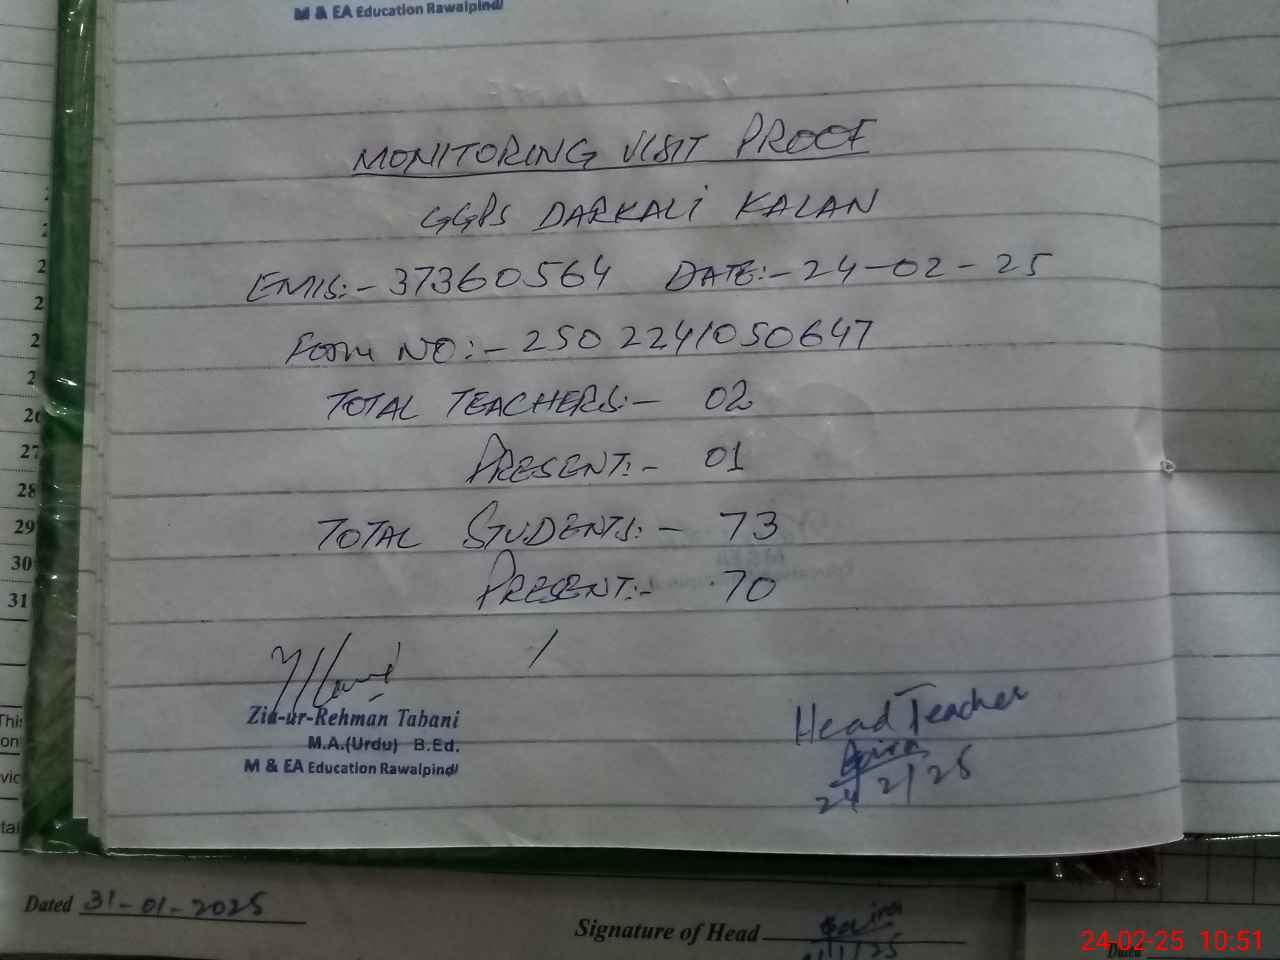 M & EA Education Rawalpindi
MONITORING VISIT PROOF
GGPS DARKALI KALAN
EMIS:- 37360564 DATE:- 24-02-25
Form NO:- 2502241050647
TOTAL TEACHERS:- 02
PRESENT:- 01
TOTAL STUDENTS:- 73
PRESENT:- 70
Zia-ur-Rehman Tabani
M.A.(Urdu) B.Ed.
M & EA Education Rawalpindi
Head Teacher
24/2/25
2
2
2
2
2
26
27
28
29
30
31
This
on
vic
tai
Dated 31-01-2025
Signature of Head
Dated
24-02-25 10:51